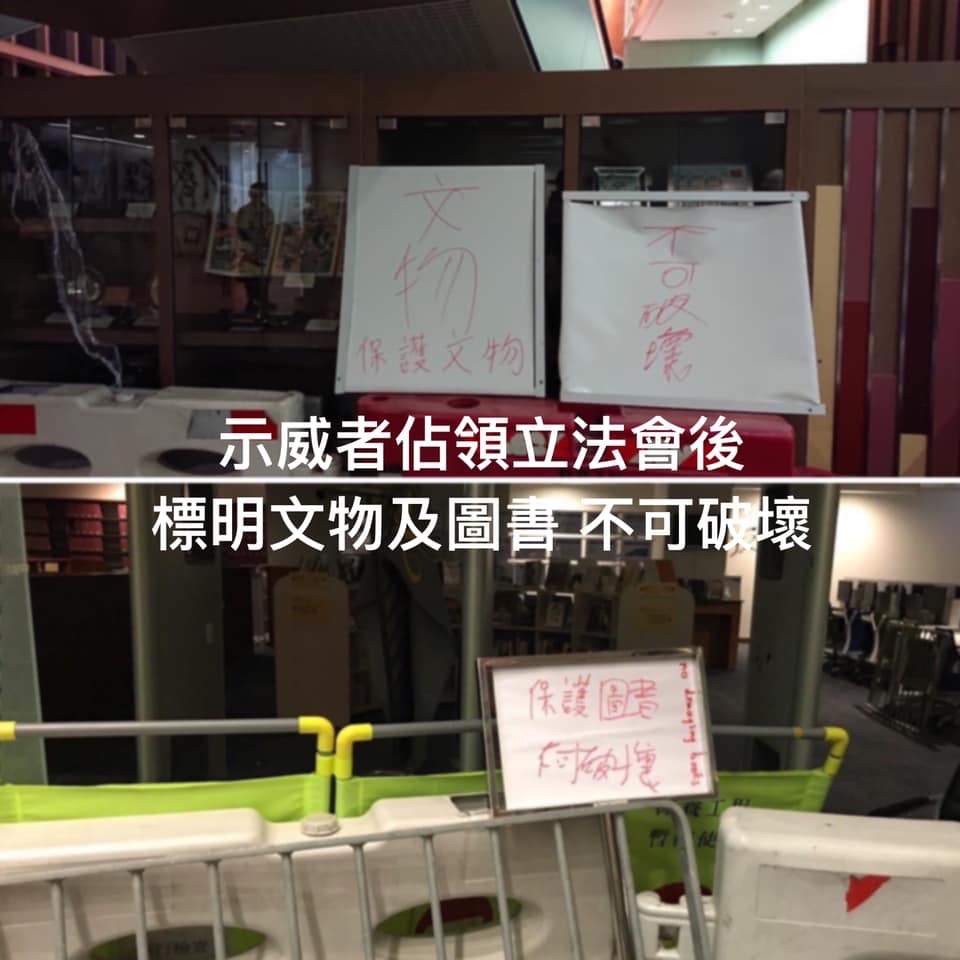 文
物
保護文物
不
可
破
壞
示威者佔領立法會後
標明文物及圖書 不可破壞
保護圖書
不可破壞
no damaging books